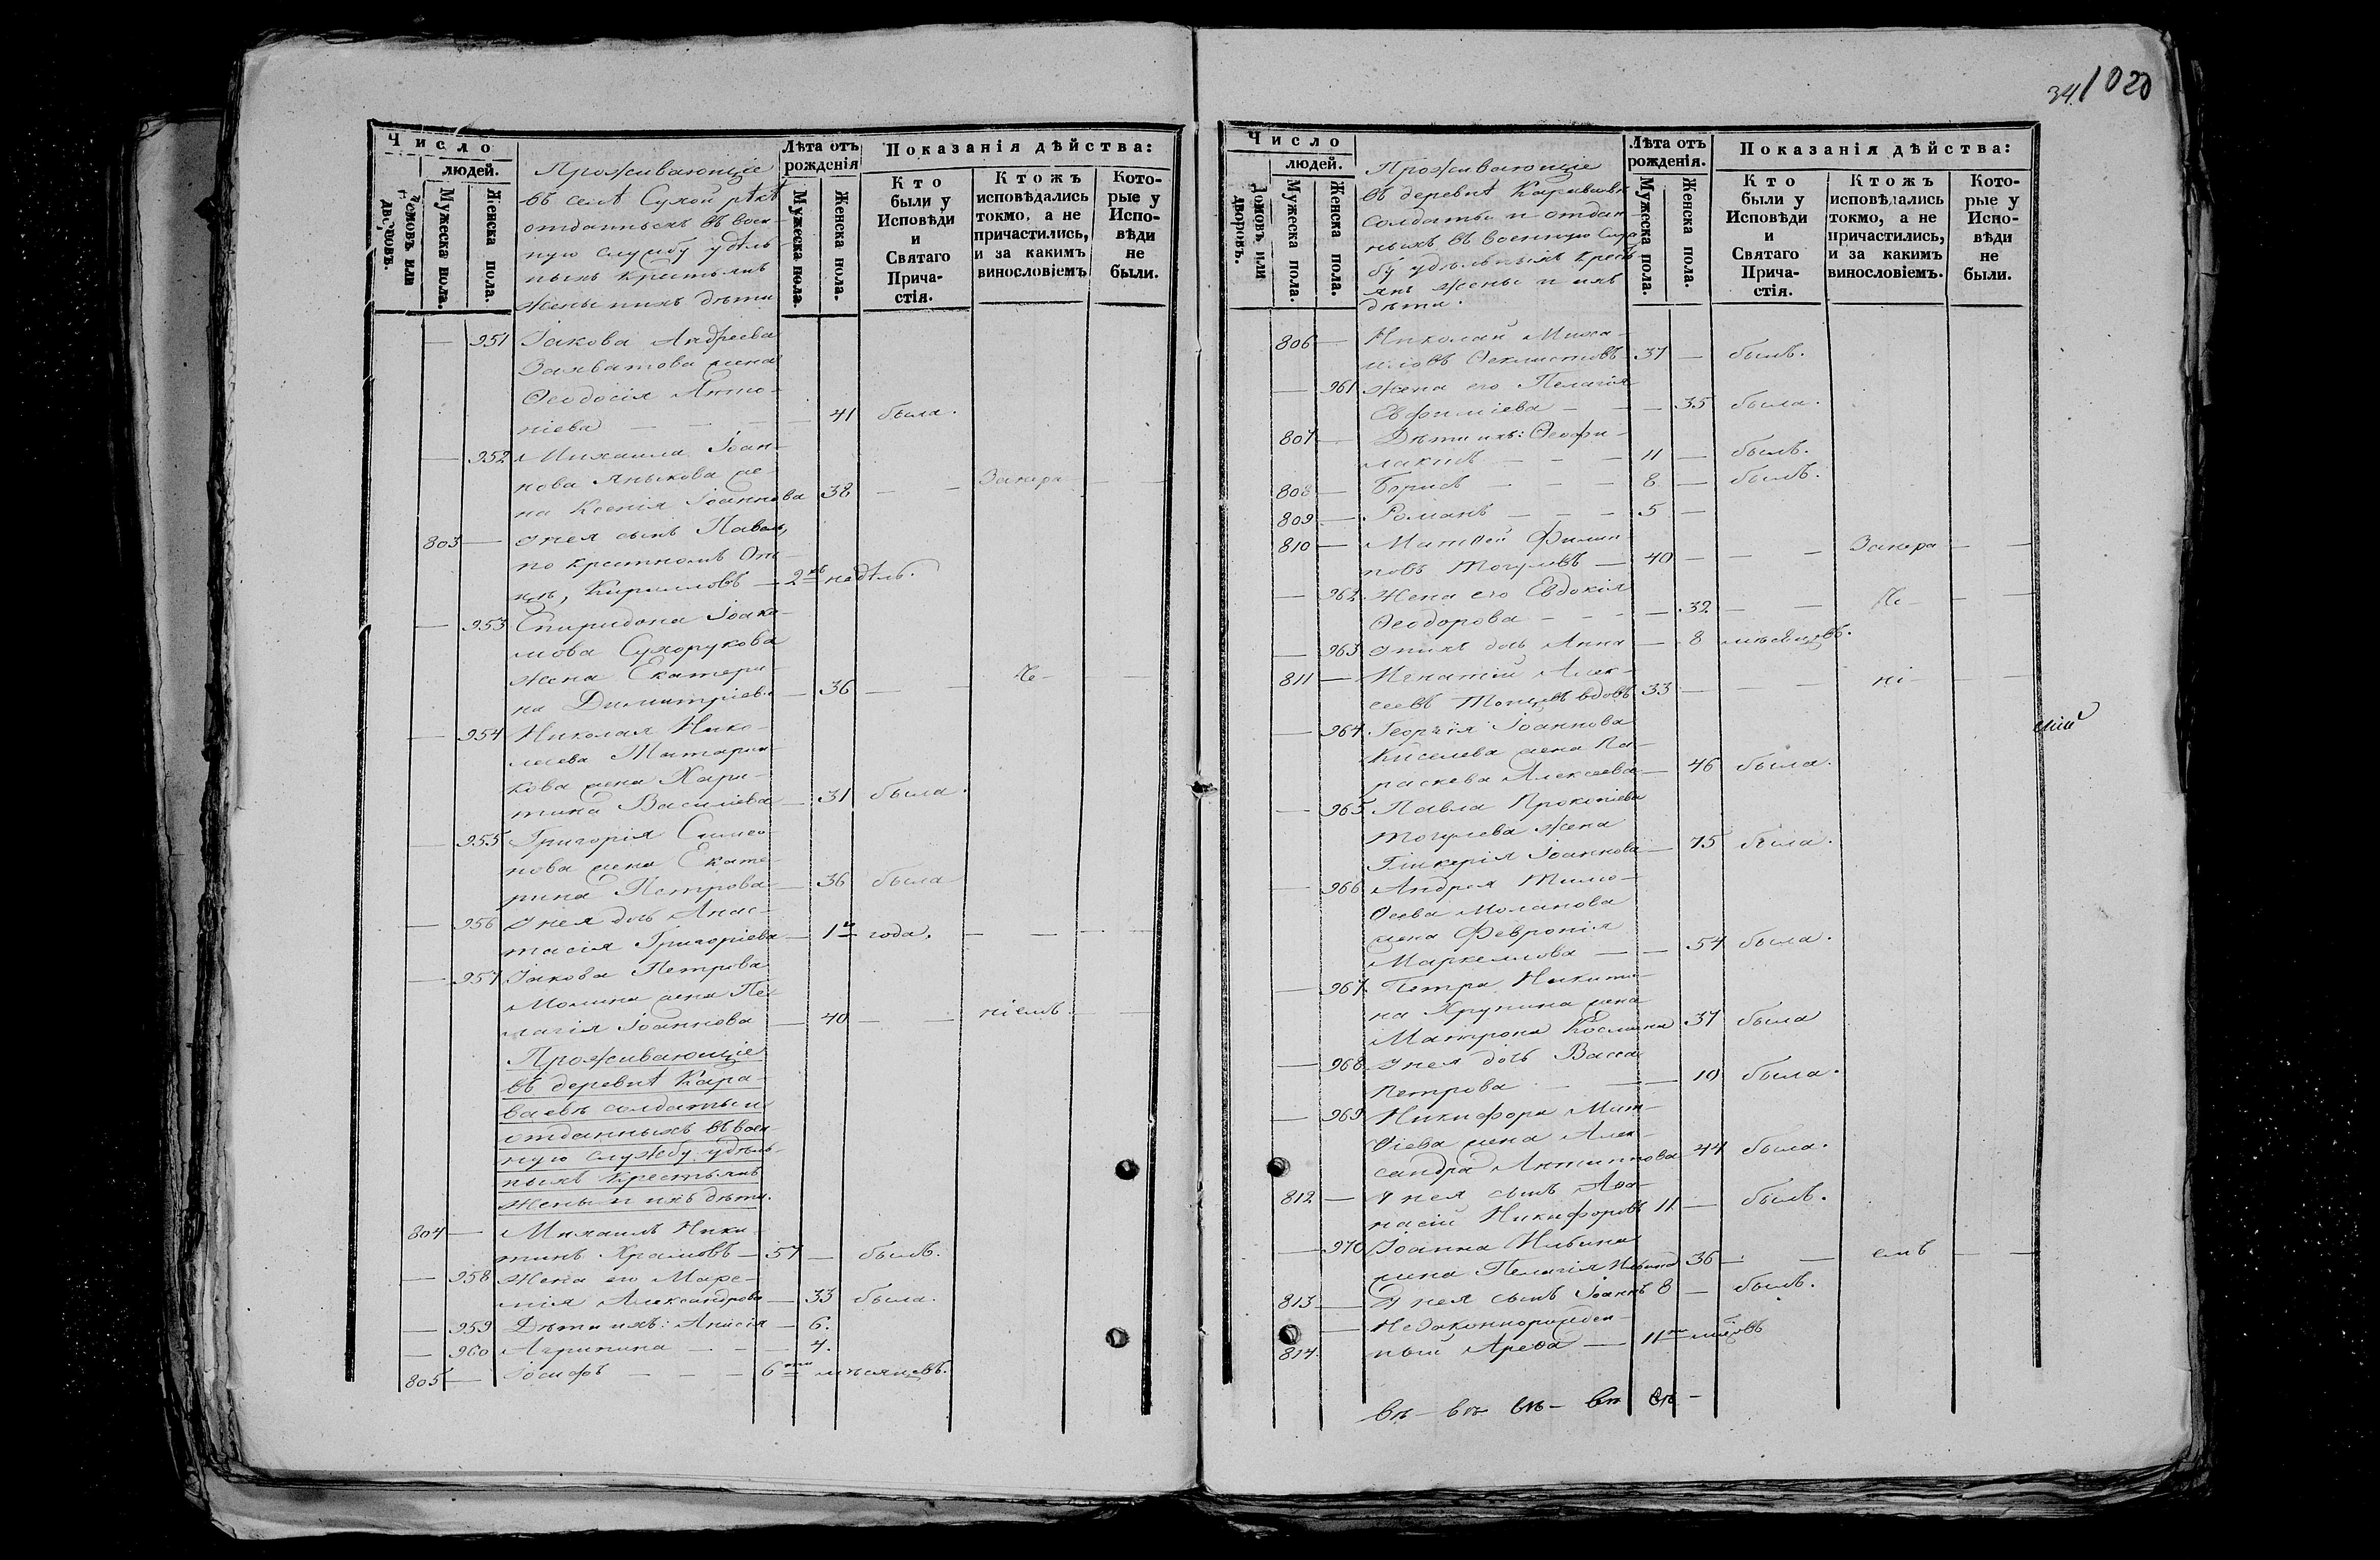 34. 1020
Число
людей.
Домовъ или дворовъ.
Мужеска пола.
Женска пола.
Проживающіе
въ селѣ Сухой рѣкѣ
отданныхъ въ воен-
ную службу удѣль
ныхъ крестьянъ
жены и ихъ дѣти
Лѣта отъ
рожденія
Мужеска пола.
Женска пола.
Показанія дѣйства:
Кто
были у
Исповѣди
и
Святаго
Прича-
стія.
Ктожъ
исповѣдались
токмо, а не
причастились,
и за какимъ
винословіемъ
Кото-
рые у
Испо-
вѣди
не
были.
— 951 Іакова Андреева
жена
Ѳеодосія Анто-
ніева — — — 41 была.
— 952 Михаила Іоан-
нова Языкова же-
на Ксенія Іоаннова 38 — — Занера — —
803 — У нея сынъ Павелъ,
по крестномъ От-
цѣ, Кирилловъ — 2хъ недѣль.
— 953 Спиридона Іоаки-
мова Сухорукова
жена Екатери-
на Димитріева — 36 — — че- —
— 954 Николая Нико-
лаева Татарни-
кова жена Хари-
тина Василіева — 31 была.
— 955 Григорія Симео-
нова жена Екате-
рина Петрова — 36 была
— 956 У нея дочь Анас-
тасія Григоріева — 1го года. — — — —
— 957 Іакова Петрова
Молина жена Пе-
лагія Іоаннова — 40 — — ніемъ — —
Проживающіе
въ деревнѣ Кара-
ваевѣ солдаты и
отданныхъ въ воен-
ную службу удѣль-
ныхъ крестьянъ
жены и ихъ дѣти.
804 — Михаилъ Ники-
тинъ Храмовъ — 57 — былъ.
— 958 Жена его Маре-
мія Александрова — 33 была.
— 959 Дѣти ихъ: Анисія — 6.
— 960 Агрипина — — — 4.
805 — Іосифъ — — — 6ти мѣсяцевъ.
Число
людей.
Домовъ или дворовъ.
Мужеска пола.
Женска пола.
Проживающіе
въ деревнѣ Караваевѣ
солдаты и отдан-
ныхъ въ военную служ-
бу удѣльныхъ кресть
янъ жены и ихъ
дѣти.
Лѣта отъ
рожденія.
Мужеска пола.
Женска пола.
Показанія дѣйства:
Кто
были у
Исповѣди
и
Святаго
Прича-
стія.
Ктожъ
исповѣдались
токмо, а не
причастились,
и за какимъ
винословіемъ.
Кото-
рые у
Испо-
вѣди
не
были.
806 — Николай Миха-
иловъ Ѳеклистовъ 37 — былъ.
— 961 Жена его Пелагія
Евфиміева — — — 35 была.
807 — Дѣти ихъ: Ѳеофи-
лактъ — — — 11 — былъ.
808 — Борисъ — — — 8 — былъ.
809 — Романъ — — — 5 —
810 — Матѳей Филип-
повъ — 40 — — — Занера — —
— 962 Жена его Евдокія
Ѳеодорова — — — 32 — — че- — —
— 963 У нихъ дочь Анна — 8 мѣсяцовъ.
811 — Игнатій Алек-
сеевъ вдовъ 33 — — — ні — —
— 964 Георгія Іоаннова
Киселева жена Па-
раскева Алексеева — 46 была.
— 965 Павла Прокопіева
жена
Гликерія Іоаннова — 75 была.
— 966 Андрея Тимо-
ѳеева Моланова
жена Февронія
Маркеллова — — 54 была.
— 967 Петра Никити-
на Хрупина жена
Матрона Космина 37 была
— 968 У нея дочь Васса
Петрова — — 10 была.
— 969 Никифора Мат-
ѳіева жена Алек-
сандра Антипова 44 была.
812 — У нея сынъ Аѳа-
насій Никифоровъ 11 — былъ.
— 970 Іоанна Ильина
жена Пелагія Ильина 36 — — емъ — —
813 — У нея сынъ Іоаннъ 8 — былъ.
— Незаконнорожден-
814. ный Арефа — 11ти мѣсяцовъ
вѣ- вѣ вѣ- вѣ вѣ -